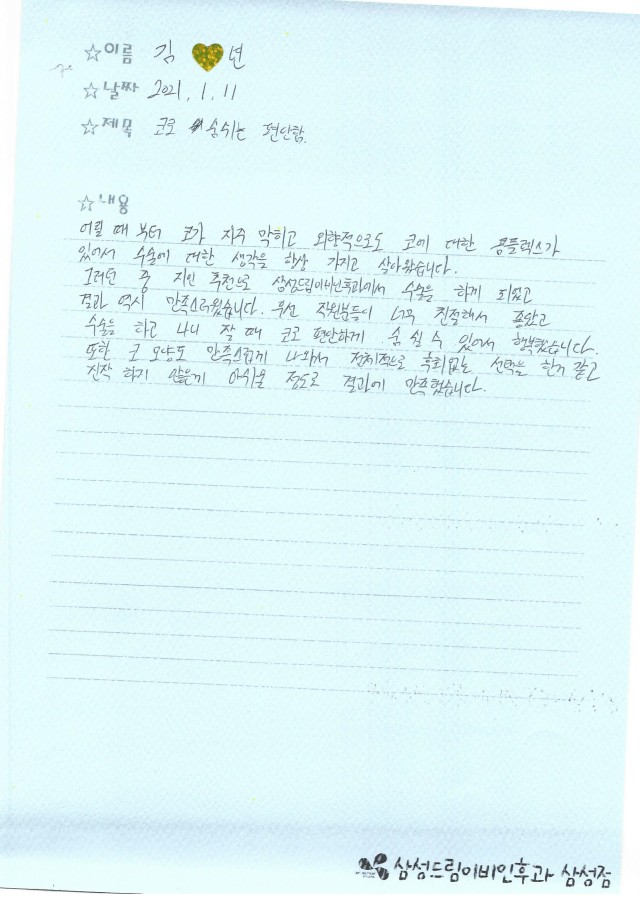 ☆이름 김 년
☆날짜 2021. 1. 11
☆제목 코로 숨쉬는 편안함.
☆내용
어릴 때 부터 코가 자주 막히고 외향적으로도 코에 대한 콤플렉스가
있어서 수술에 대한 생각을 항상 가지고 살아왔습니다.
그러던 중 지인 추천으로 삼성드림이비인후과에서 수술을 하게 되었고
결과 역시 만족스러웠습니다. 우선 직원분들이 너무 친절해서 좋았고
수술을 하고 나니 잘 때 코로 편안하게 숨 쉴 수 있어서 행복했습니다.
또한 코 모양도 만족스럽게 나와서 전체적으로 후회없는 선택을 한거 같고
진작 하지 않은게 아쉬울 정도로 결과에 만족했습니다.
삼성드림이비인후과 삼성점